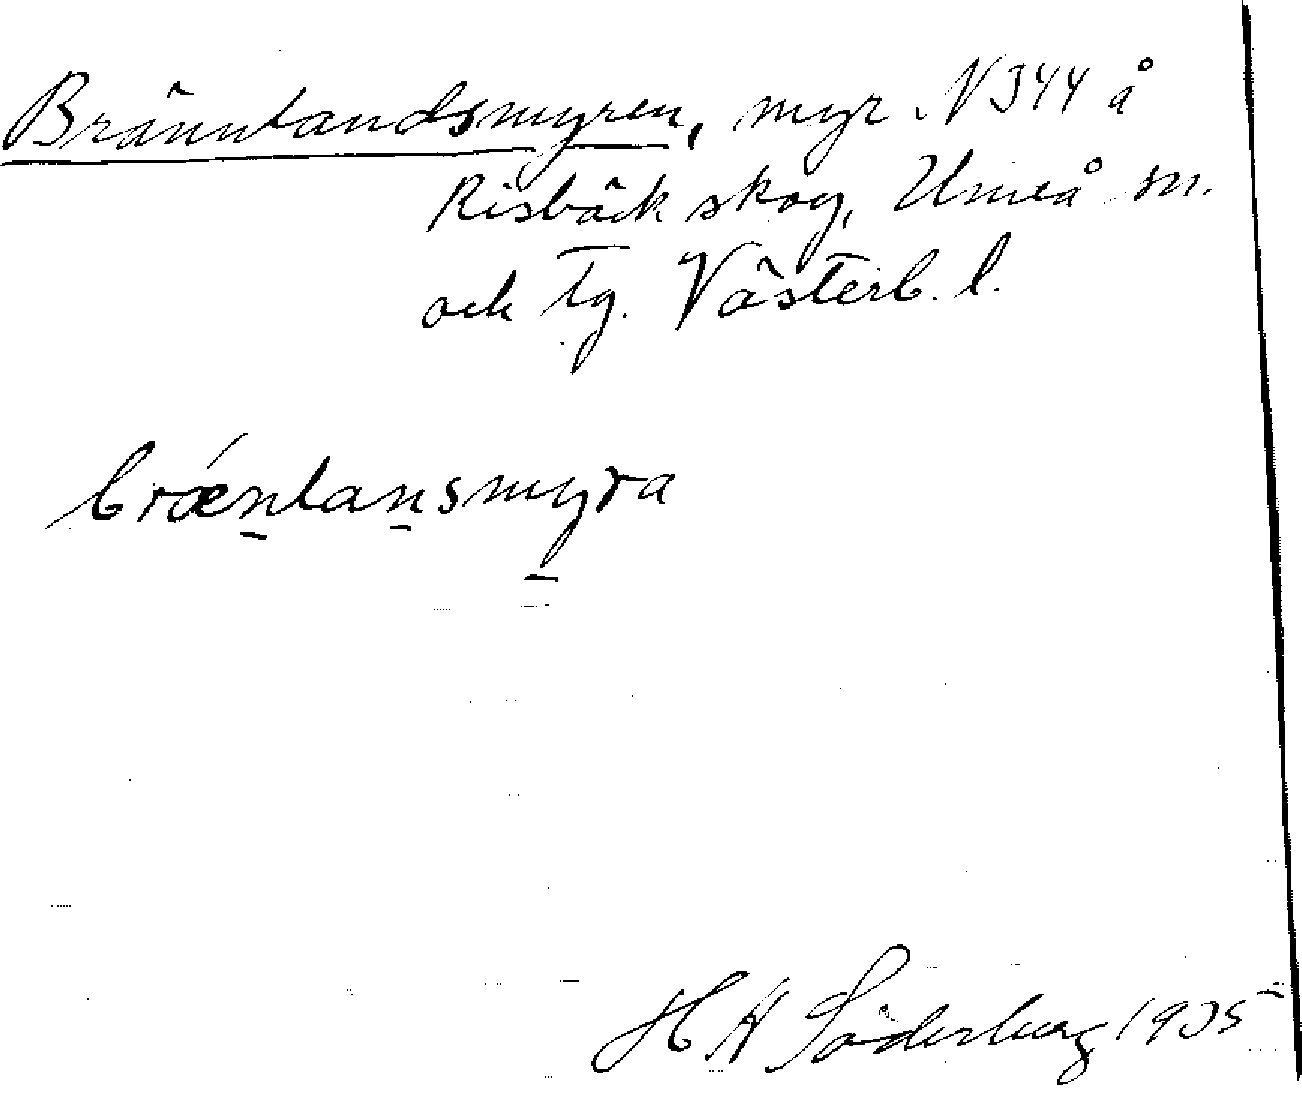 Brännlandsmyren, myr N344 å
Risbäck skog, Umeå sn.
och Tg. Västerb. l.
brǽnlansmyra
H H Söderberg 1935